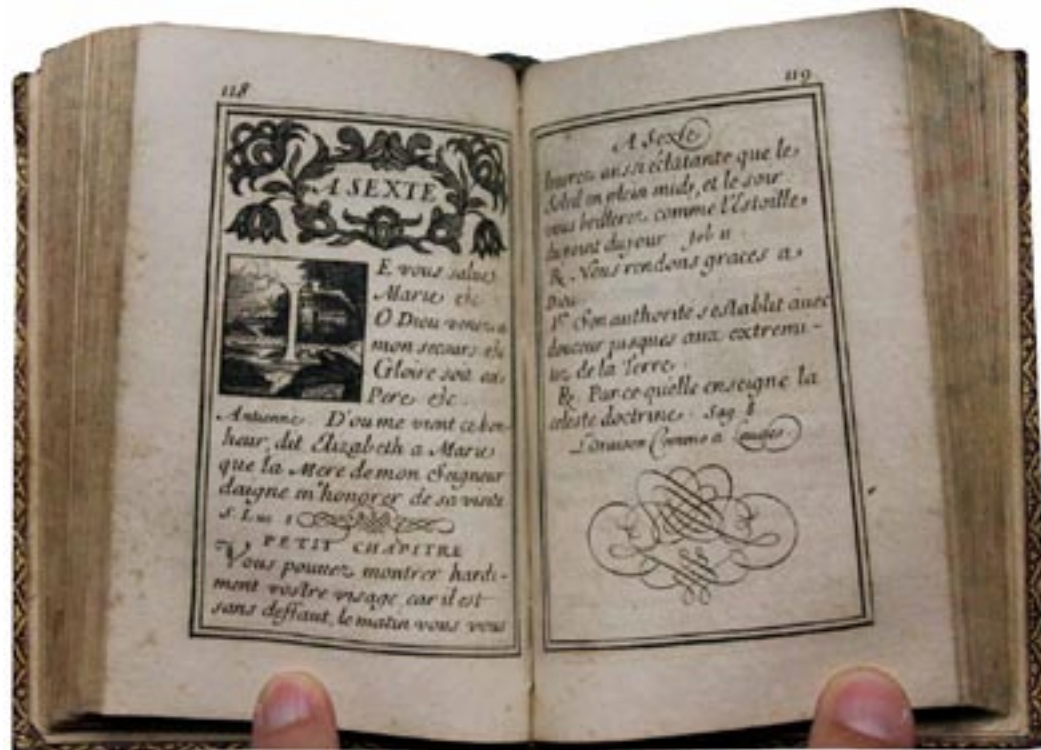 118
A SEXTE
E vous salue
Marie etc.
O Dieu venez a
mon secours etc
Gloire soit au
Pere etc.
Antienne. D'ou me vient ce bon-
heur, dit Elizabeth a Marie
que la Mere de mon Seigneur
daigne m'honorer de sa visite
S. Luc 1
PETIT CHAPITRE
Vous pouuez montrer hardi-
ment vostre visage, car il est
sans deffaut, le matin vous vous
119
A Sexte
leverez aussi éclatante que le
Soleil en plein midy, et le soir
vous brillerez comme l'Estoille
du point du jour Job 11
R. Nous rendons graces a
Dieu.
V. Son authorité s'establit avec
douceur jusques aux extremi-
tez de la Terre.
R. Parce quelle enseigne la
celeste doctrine. Sag. 8
L'Oraison Comme a Laudes.